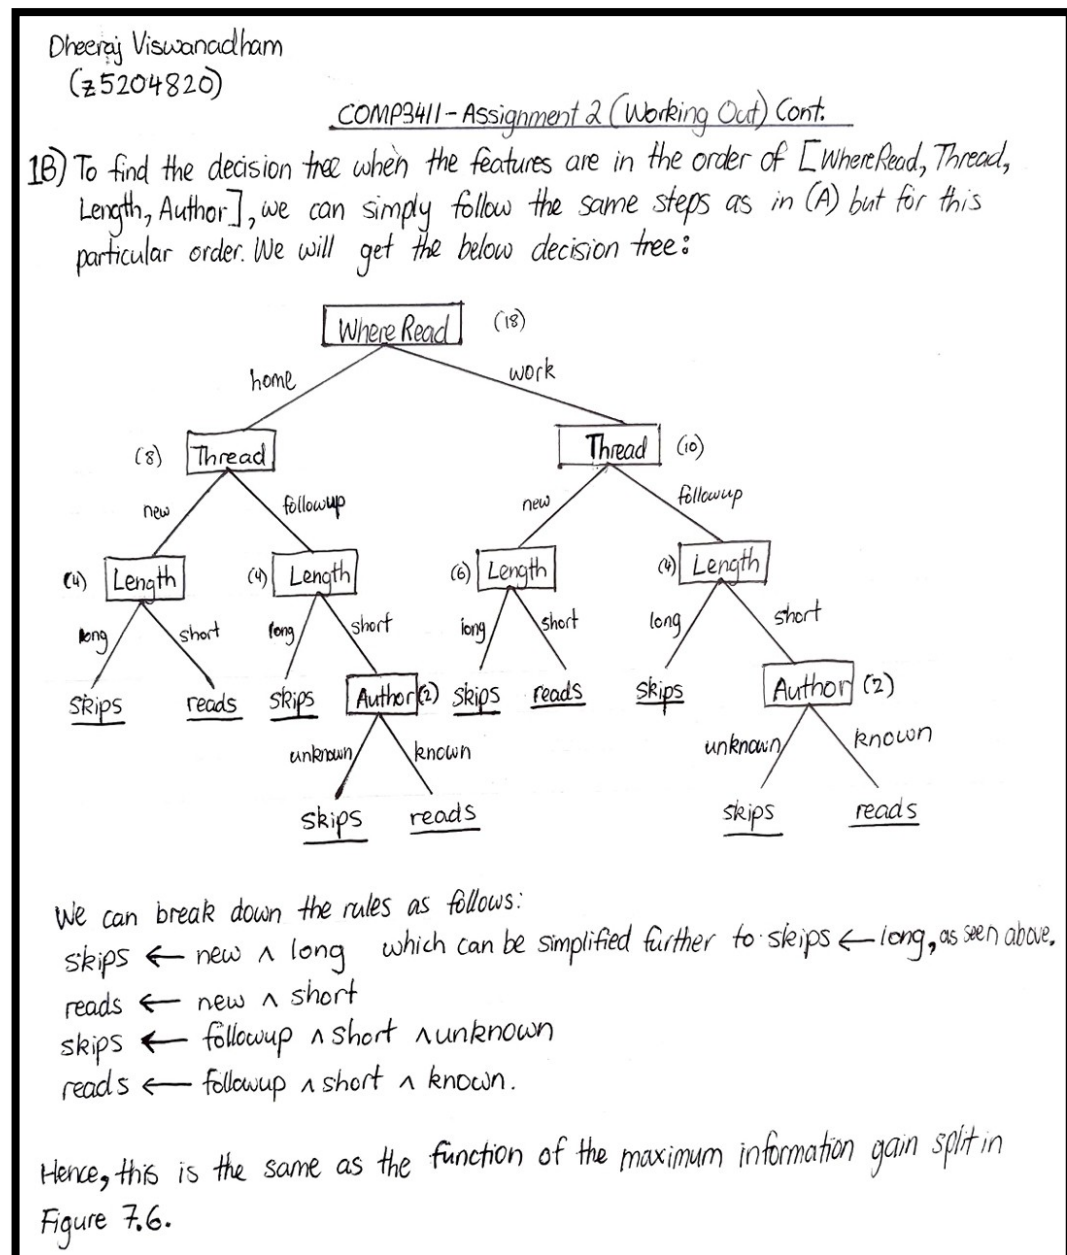 Dheeraj Viswanadham
(z5204820)
COMP3411 - Assignment 2 (Working Out) Cont.
1B) To find the decision tree when the features are in the order of [WhereRead, Thread,
Length, Author], we can simply follow the same steps as in (A) but for this
particular order. We will get the below decision tree:
Where Read (18)
home work
(8) Thread Thread (10)
new followup new followup
(4) Length (4) Length (6) Length (4) Length
long short long short long short long short
skips reads skips Author (2) skips reads skips Author (2)
unknown known unknown known
skips reads skips reads
We can break down the rules as follows:
skips ← new ∧ long which can be simplified further to skips ← long, as seen above.
reads ← new ∧ short
skips ← followup ∧ short ∧ unknown
reads ← followup ∧ short ∧ known.
Hence, this is the same as the function of the maximum information gain split in
Figure 7.6.